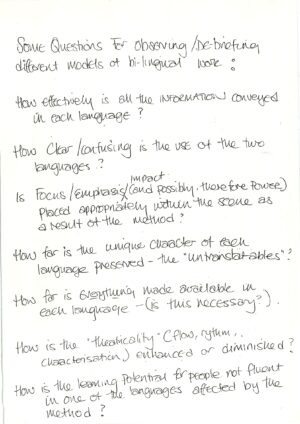 Some Questions For observing/De-briefing
different models of bi-lingual work :
How effectively is all the INFORMATION conveyed
in each language ?
How Clear/confusing is the use of the two
languages ?
impact
Is Focus/emphasis/(and possibly, therefore Power)
placed appropriately within the scene as
a result of the method ?
How far is the unique character of each
language preserved - the "untranslatables" ?
How far is everything made available in
each language - (is this necessary?).
How is the "theatricality" (flow, rythm,
characterisation) enhanced or diminished ?
How is the learning potential for people not fluent
in one of the languages affected by the
method ?